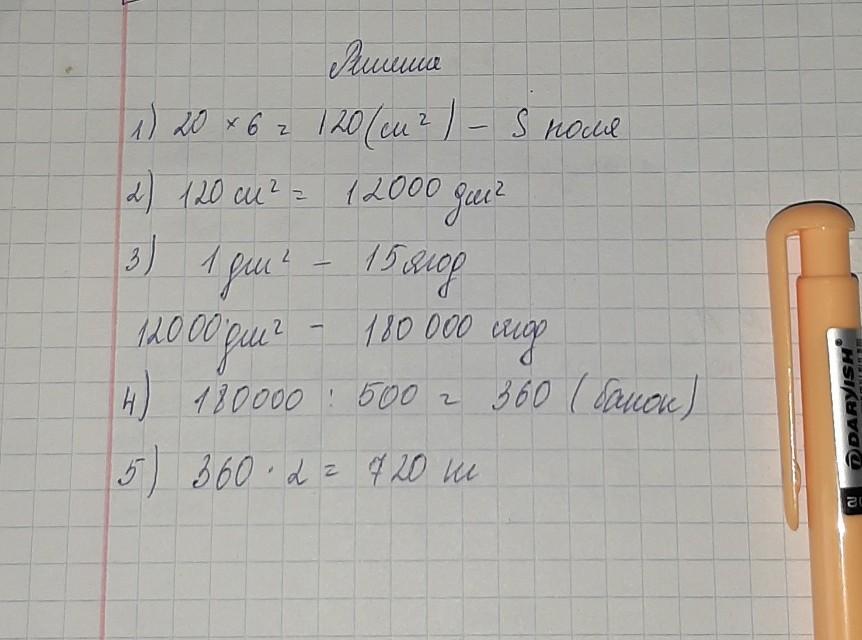 Решение
1) 20 × 6 = 120 (см²) – S поля
2) 120 см² = 12000 дм²
3) 1 дм² – 15 ягод
12000 дм² – 180 000 ягод
4) 180000 : 500 = 360 (банок)
5) 360 · 2 = 720 ш
DARVISH